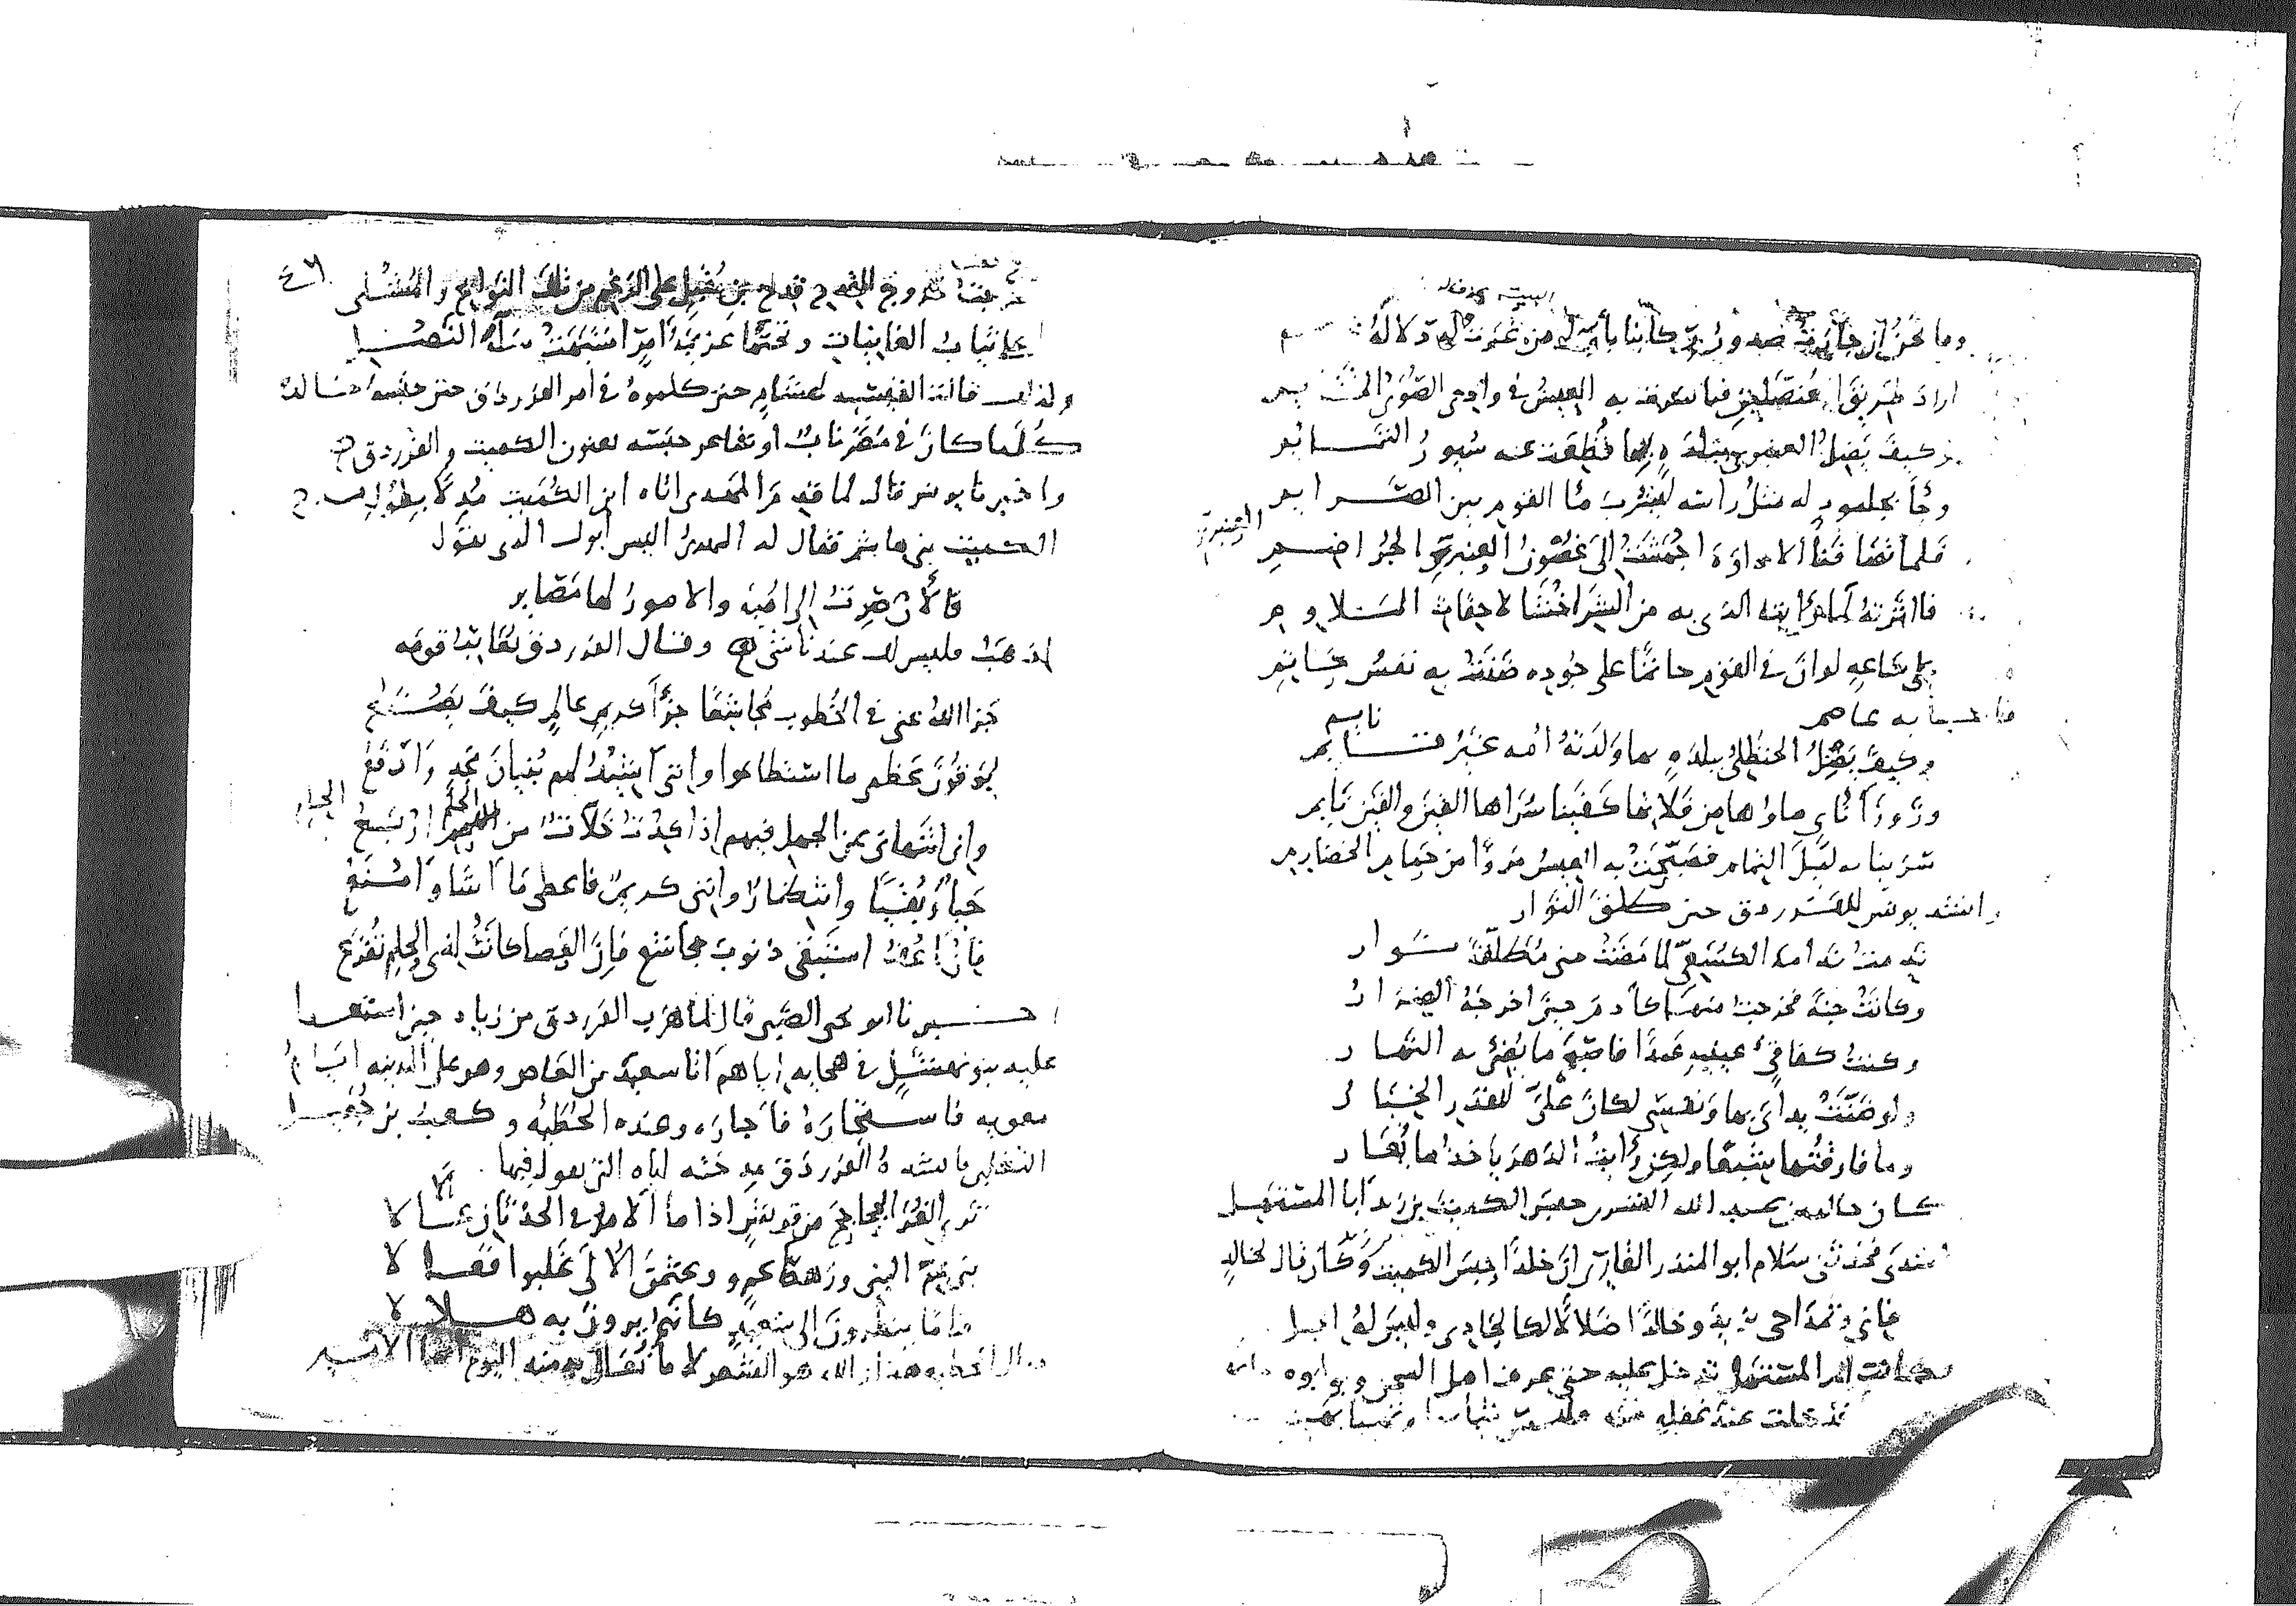 وما نحن إن جارت صدور ركابنا بأول من غرت دلالة
اراد طريق العنصلين فياسرت به العيس في وادي الصوى المتشائم
وكيف يضل العنبري ببلدة بها قطعت عنه سيور التمائم
وجاء بجلمود له مثل رأسه ليشرب ماء القوم بين الصرائم
فلما تصافنا الاداوة اجهشت الى غضون العنبري الجراضم
العنبري
فآثرته لما رأيت الذي به من الشر اخشى لاحقات الملاوم
على ساعة لو ان في القوم حاتما على جوده ضنت به نفس حاتم
فاجابه عاصم
نايم
وكيف يضل الحنظلي ببلدة بها ولدته امه غير
شربنا به ليل التمام فصبحت به العيس من جمام الخضارم
وانشد يونس للفرزدق حين طلق النوار
ندمت ندامة الكسعي لما مضت مني مطلقة نوار
وكانت جنة فخرجت منها كآدم حين اخرجه الضرار
وكنت كفاقئ عينيه عمدا فاصبح ما يضيء له النهار
ولو ضنت يداي بها ونفسي لكان علي للقدر الخيار
وما فارقتها شبعا ولكن رأيت الدهر يأخذ ما يعار
كان خالد بن عبد الله القسري حبس الكميت بن زيد ابا المستهل
الاسدي فحدثني سلام ابو المنذر القارئ ان خالدا حبس الكميت وكان قال لخالد
فاني وتمداحي يزيد وخالدا ضلالا لكالحادي وليس له ابل
وكانت ام المستهل تدخل عليه حتى عرف اهل السجن وبوابوه
فدخلت عنده ثيابها
٤٦
خرجت خروج القدح قدح بن مقبل على الرغم من تلك النوابح والمشلي
علي ثياب الغانيات وتحتها عزيمة امر اشبهت سلة النصل
ولذلك قالت القيسية لهشام حين كلموه في امر الفرزدق حين حبسه خالد
كلما كان في مضر ناب او شاعر حبسته يعنون الكميت والفرزدق
واخبرنا يونس قال لما قدم المهدي اتاه ابن الكميت مدلا بطول مدح
الكميت بني هاشم فقال له المهدي اليس ابوك الذي يقول
فالآن صرت الى امية والامور لها مصاير
اذهب فليس لك عندنا شيء وقال الفرزدق يعاتب قومه
جزا الله عني في الخطوب مجاشعا جزاء كريم عالم كيف يصنع
يرقون عظمي ما استطاعوا وانني اشيد لهم بنيان مجد وارفع
واني لتنهاني عن الجهل فيهم اذا كدت خلات من الحلم اربع
حياء وبقيا وانتظار وانني كريم فاعطي ما اشا وامنع
فان اعف استبقي ذنوب مجاشع فان العصا كانت لذي الحلم تقرع
اخبرنا ابو يحيى الضبي قال لما هرب الفرزدق من زياد حين استعدا
عليه بنو نهشل في هجائه اياهم اتا سعيد بن العاص وهو على المدينة ايام
معوية فاستجاره فاجاره وعنده الحطيئة وكعب بن جعيل
التغلبي فانشده الفرزدق مدحته اياه التي يقول فيها
ترى الغر الجحاجح من قريش اذا ما الامر في الحدثان عالا
بني عم النبي ورهط عمرو وعثمن الألى غلبوا فعالا
قياما ينظرون الى سعيد كانهم يرون به هلالا
فقال الحطيئة هذا والله هو الشعر لا ما تعلل به منذ اليوم ايها الامير